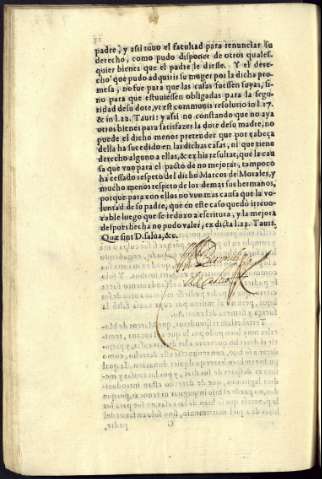 padre, y asi tuvo el facultad para renunciar su
derecho, como pudo disponer de otros quales-
quier bienes que el padre le diesse. Y el dere-
cho que pudo adquirir su muger por la dicha pro-
messa, no fue para que las casas fuessen suyas, si-
no para que estuviessen obligadas para la segu-
ridad de su dote, vt est communis resolutio in l. 17.
& in l. 22. Tauri: y asi no constando que no aya
otros bienes para satisfazer la dote de su madre, no
puede el dicho menor pretender que por cabeça
della ha sucedido en las dichas casas, ni que tiene
derecho alguno a ellas, & ex his resultat, que la cau-
sa que vuo para el pacto de no mejorar, tampoco
ha cessado respeto del dicho Marcos de Morales, y
mucho menos respeto de los demas sus hermanos,
porque para con ellos no vuo mas causa que la vo-
luntad de su padre, que en este caso quedò irreuo-
cable luego que se reduxo a escritura, y la mejora
despues hecha no pudo valer, ex dicta l. 22. Tauri.
Quæ sint D. salua, &c.